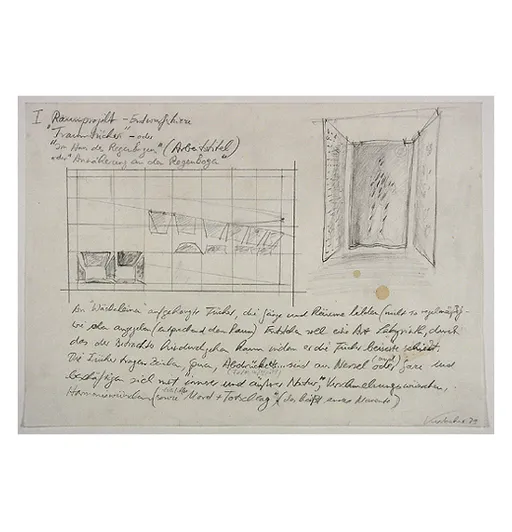 I Raumprojekt - Entwurfskizze
"Traumtücher" - oder
"Im Haus des Regenbogens" (Arbeitstitel)
oder "Annäherung an den Regenbogen"
An "Wäscheleinen" aufgehängte Tücher, die Gänge und Räume bilden (nicht so regelmäßig
wie oben angegeben (entsprechend dem Raum) Entstehen soll eine Art Labyrinth, durch
das der Betrachter hindurchgehen kann indem er die Tücher beiseite schiebt.
Die Tücher tragen Zeichen, Spuren, Abdrücke sind aus Nessel (Mull) oder Gaze und
beschäftigen sich mit innerer und äußerer Natur, Verschmelzungswünschen,
Harmoniewünschen (sowie Mord + Totschlag" (das heißt